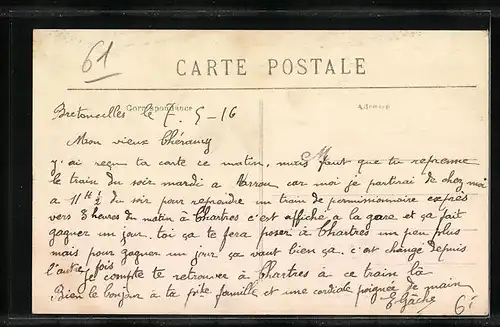 61
CARTE POSTALE
Correspondance
Adresse
Bretoncelles le 7. 5-16
Mon vieux Chéramy
M
J'ai reçu ta carte ce matin, mais faut que tu reprenne
le train du soir mardi a car moi je partirai de chez moi
a 11H ½ du soir pour reprendre un train de permissionnaire exprés
vers 3 heures du matin à Chartres c'est affiché a la gare et ça fait
gagner un jour. toi ça te fera poser à Chartres un peu plus
mais pour gagner un jour ça vaut bien ça. c'est changé depuis
l'autre fois
Je compte te retrouver à Chartres à ce train là
Bien le bonjour à ta ptte famille et une cordiale poignée de main
E Gâche
6